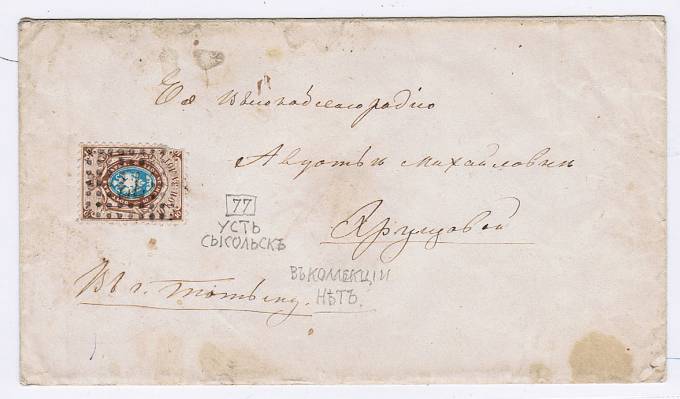 Ея высокоблагородію
Августѣ Михайловнѣ
77
УСТЬ
СЫСОЛЬСКЪ
ВЪ КОЛЛЕКЦІИ
НѢТЪ.
Въ г. Тотьму.